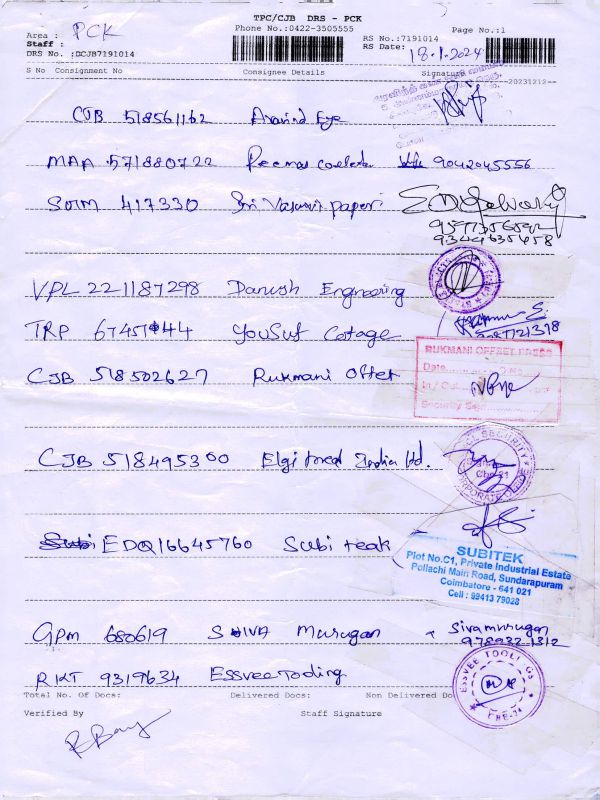 TPC/CJB DRS - PCK
Phone No.:0422-3505555
Page No.:1
Area : PCK
Staff :
DRS No. :DCJB7191014
RS No.:7191014
RS Date: 18.1.2024
S No Consignment No Consignee Details Signature
20231212
CJB 518561162 Aravind Eye
MAA 571880722 9042045556
417330 Sri papers
9344635458
VPL 221187298 Danush Engneering
TRP Yousuf Cotage
CJB 518502627 Rukmani Offet
RUKMANI OFFSET PRESS
Date
In / Out
Security Sign
CJB 518495300 Elgi India ltd.
SECURITY
CORPORATE OFFICE
EDQ16645760 Subi teak
SUBITEK
Plot No.C1, Private Industrial Estate
Pollachi Main Road, Sundarapuram
Coimbatore - 641 021
Cell : 99413 79028
GPM 680619 SHIVA Murugan Sivamurugan
RKT 9319634 Essvee Tooling
ESSVEE TOOLINGS
CBE-21
Total No. Of Docs: Delivered Docs: Non Delivered Do
Verified By Staff Signature